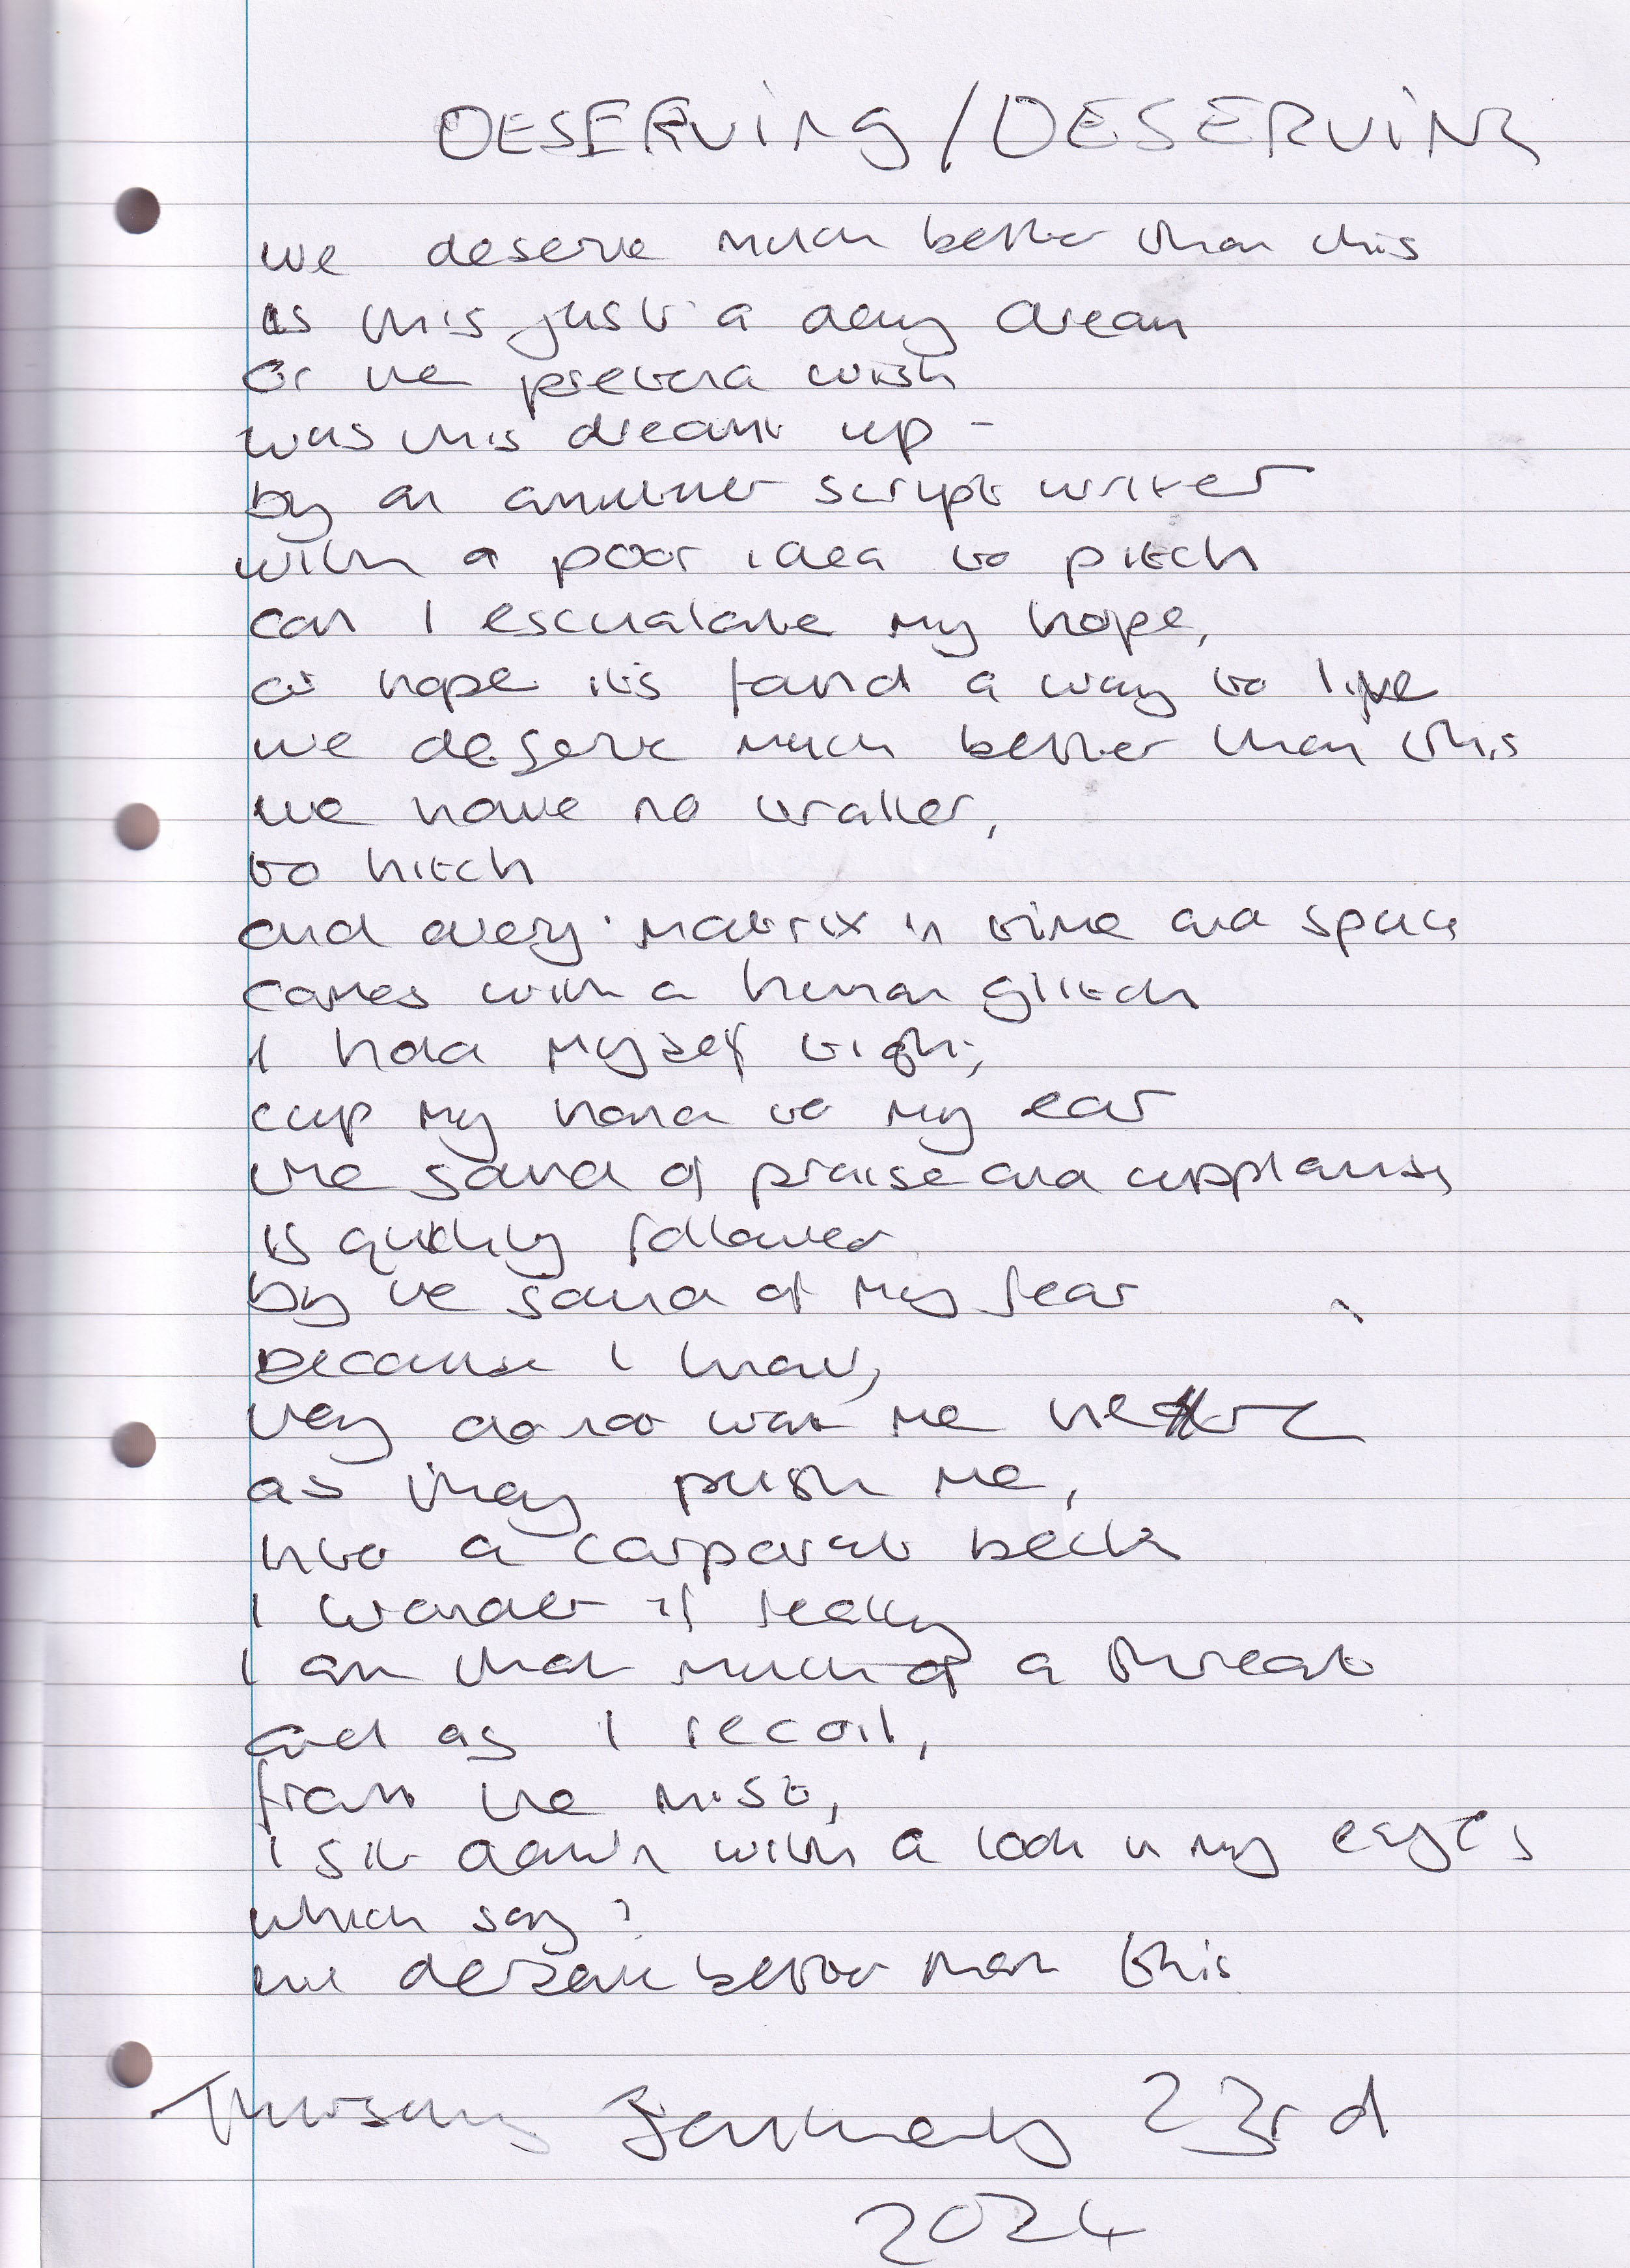 DESERVING / DESERVING
we deserve much better than this
is this just a day dream
or the pretend wish
was this dreamt up -
by an another script writer
with a poor idea to pitch
can I escualate my hope,
as hope its found a way to live
we deserve much better than this
we have no trailer,
to hitch
and every matrix in time and space
comes with a human glitch
I hold myself tight,
cup my hand to my ear
the sound of praise and applause,
is quickly followed
by the sound of my fear
because I know,
they do not want me here
as they push me,
into a corporate
I wonder if really
I am that much of a threat
and as I recoil,
from the mist,
I sit down with a look in my eyes
which say:
we deserve better than this
Thursday January 23rd
2024